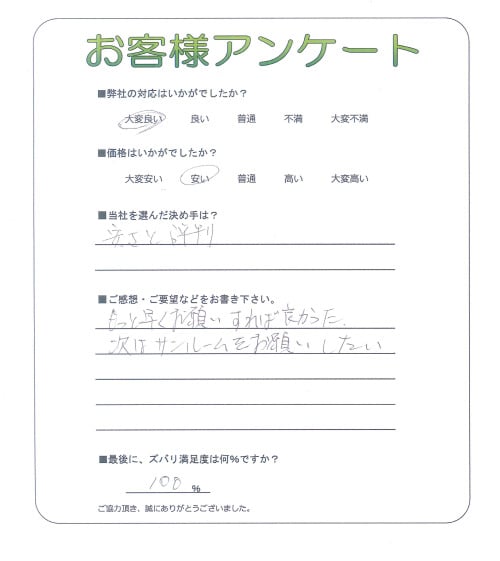 お客様アンケート
■弊社の対応はいかがでしたか？
大変良い 良い 普通 不満 大変不満
■価格はいかがでしたか？
大変安い 安い 普通 高い 大変高い
■当社を選んだ決め手は？
安さと評判
■ご感想・ご要望などをお書き下さい。
もっと早くお願いすれば良かった.
次はサンルームをお願いしたい
■最後に、ズバリ満足度は何％ですか？
100 ％
ご協力頂き、誠にありがとうございました。